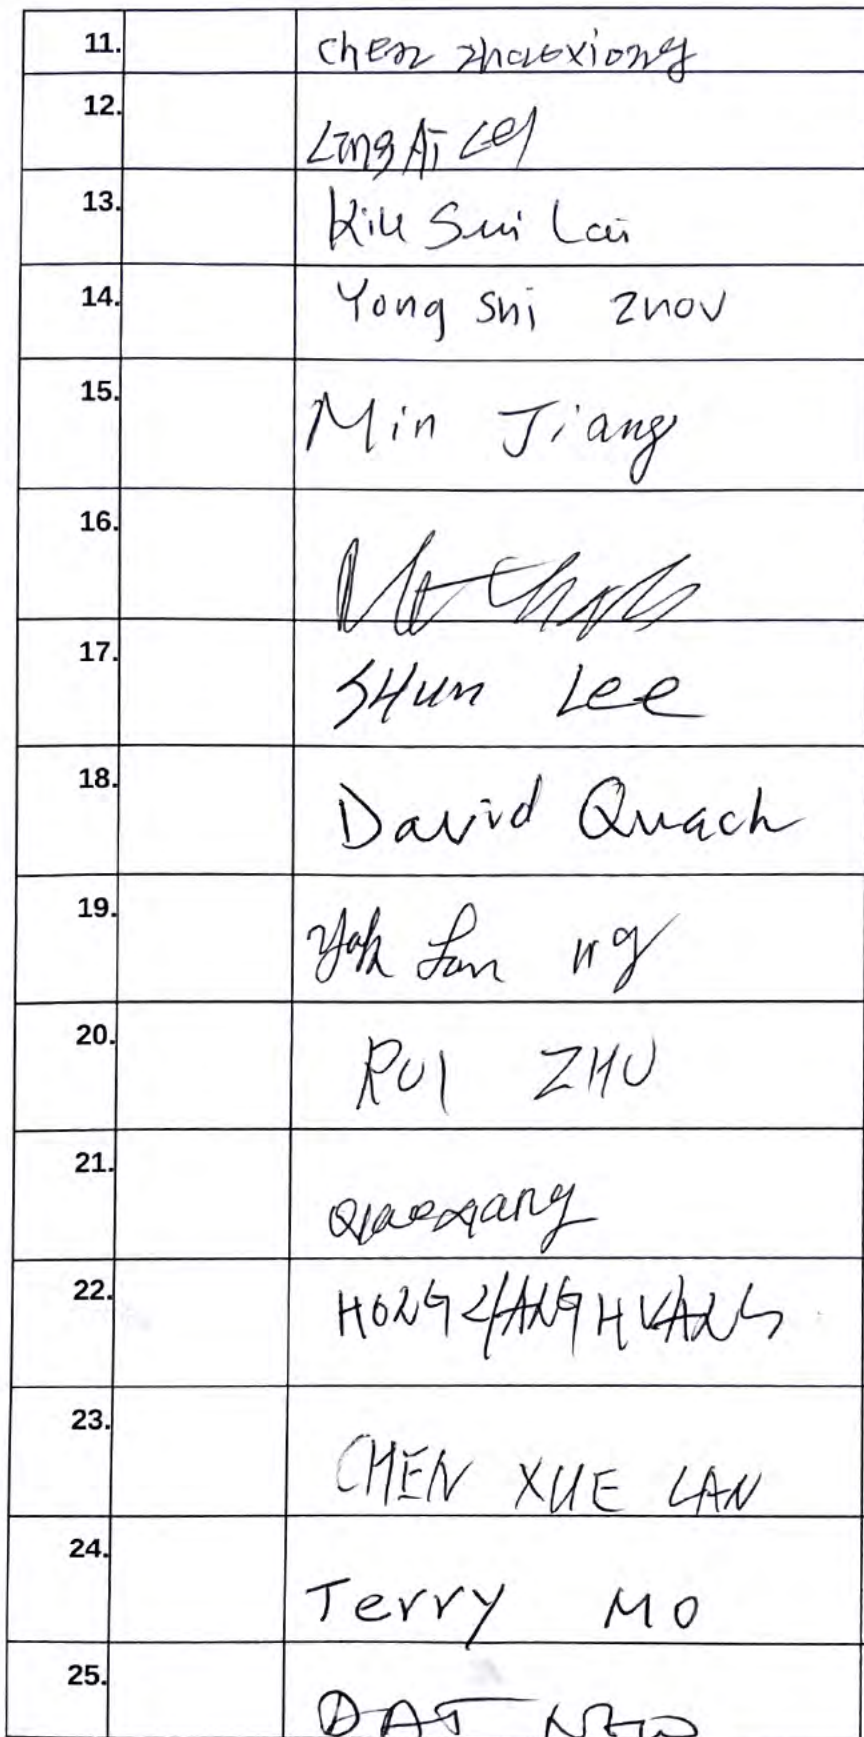 11. Chen Zhaoxiong
12. Ling Ai Lei
13. Kiu Sui Lai
14. Yong Shi Zhou
15. Min Jiang
16.
17. SHun Lee
18. David Quach
19. Yok Lan ng
20. RUI ZHU
21.
22. HONG HUANG
23. CHEN XUE LAN
24. Terry MO
25. DAT